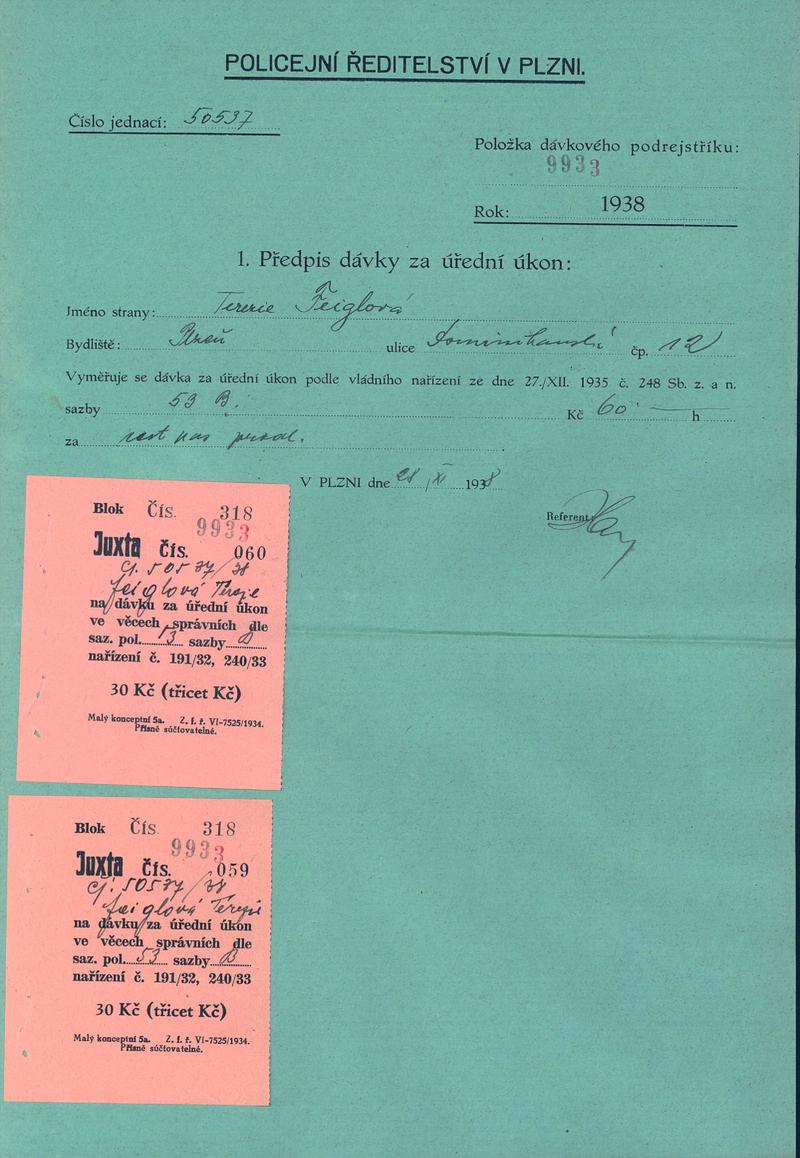 POLICEJNÍ ŘEDITELSTVÍ V PLZNI.
Číslo jednací: 50537
Položka dávkového podrejstříku:
9933
Rok: 1938
1. Předpis dávky za úřední úkon:
Jméno strany: Terezie Feiglová
Bydliště: Plzeň ulice Dominikánská čp. 12
Vyměřuje se dávka za úřední úkon podle vládního nařízení ze dne 27./XII. 1935 č. 248 Sb. z. a n.
sazby 53 B. Kč 60 h
za cest. pas
V PLZNI dne 28/XI 1938
Referent:
Blok Čís. 318
9933
Juxta Čís. 060
čj. 50537/38
Feiglová Terezie
na dávku za úřední úkon
ve věcech správních dle
saz. pol. 53 sazby B
nařízení č. 191/32, 240/33
30 Kč (třicet Kč)
Malý konceptní 5a. Z. f. ř. VI-7525/1934.
Přísně súčtovatelné.
Blok Čís. 318
9933
Juxta Čís. 059
čj. 50537/38
Feiglová Terezie
na dávku za úřední úkon
ve věcech správních dle
saz. pol. 53 sazby B
nařízení č. 191/32, 240/33
30 Kč (třicet Kč)
Malý konceptní 5a. Z. f. ř. VI-7525/1934.
Přísně súčtovatelné.